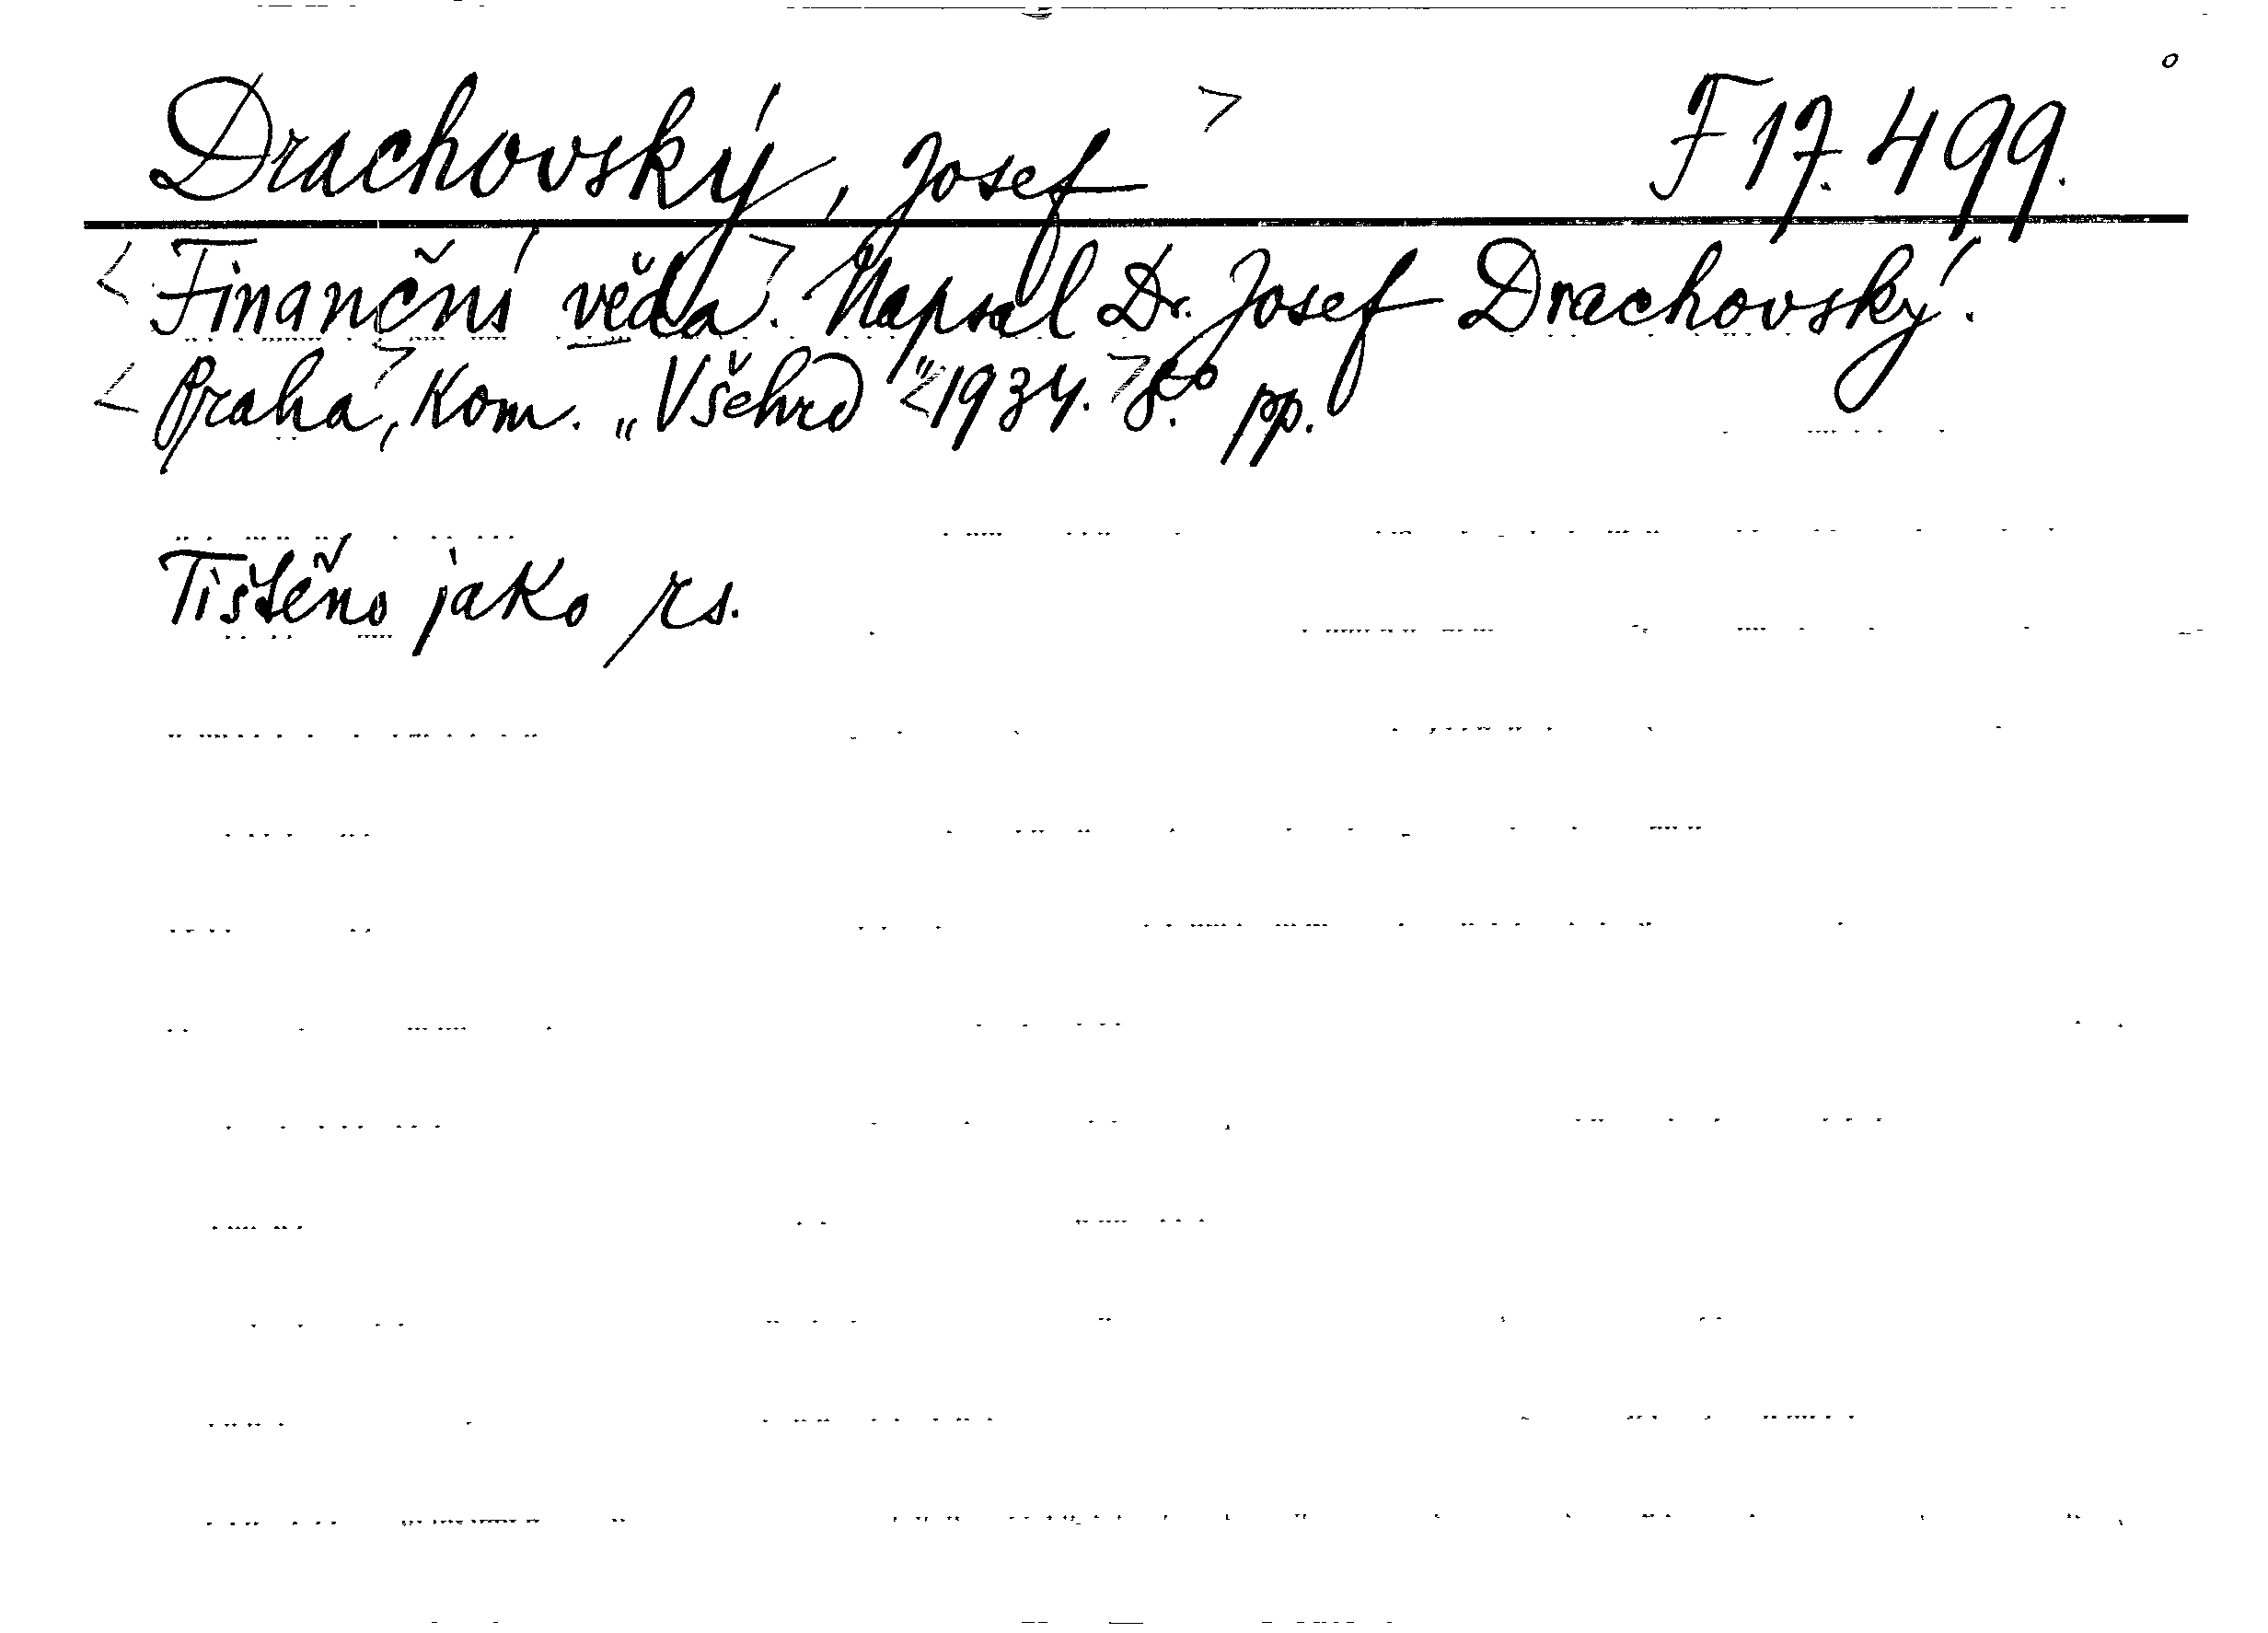 Drachovský, Josef > F 17.499.
< Finanční věda >. Napsal Dr. Josef Drachovský.
< Praha >, Kom. „Všehrd“ < 1934. > 8.° pp.
Tištěno jako rs.